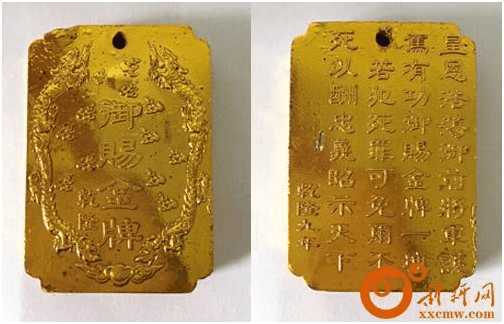 御賜金牌
乾隆
皇恩浩蕩御前將軍護
駕有功御賜金牌一塊
若犯死罪可免爾不
死以酬忠義昭示天下
乾隆九年
xxcmw.com